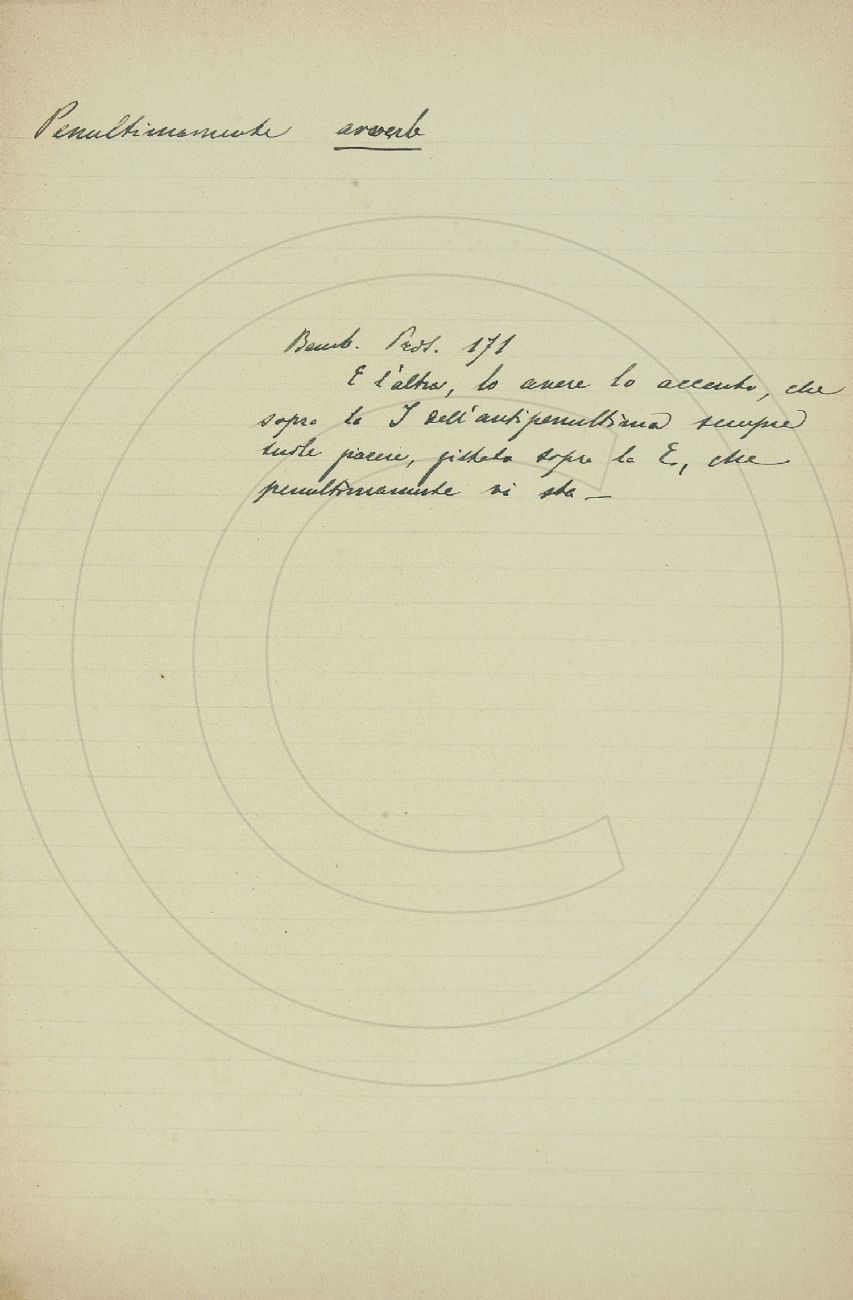 Penultimamente avverb
Bemb. Pros. 171
E l'altra, lo avere lo accento, che
sopra la I dell'antipenultima sempre
suole giacere, gittato sopra la E, che
penultimamente vi sta –